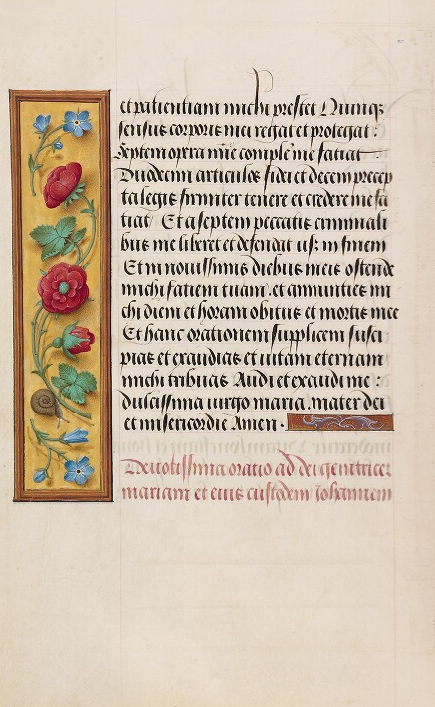 et patientiam michi prestet Quinq3
sensus corporis mei regat et protegat :
Septem opera mie comple' me fatiat
Duodecim articulos fidei et decem precep
ta legis firmiter tenere et credere me fa
tiat Et a septem peccatis criminali
bus me liberet et defendat usq3 in finem
Et in nouissimis diebus meis ostende
michi fatiem tuam . et annunties mi
chi diem et horam obitus et mortis mee
Et hanc orationem supplicem susci
pias et exaudias et uitam eternam
michi tribuas Audi et exaudi me :
dulcissima uirgo maria mater dei
et misericordie Amen .
Deuotissima oratio ad dei genitricem
mariam et eius custodem Johannem